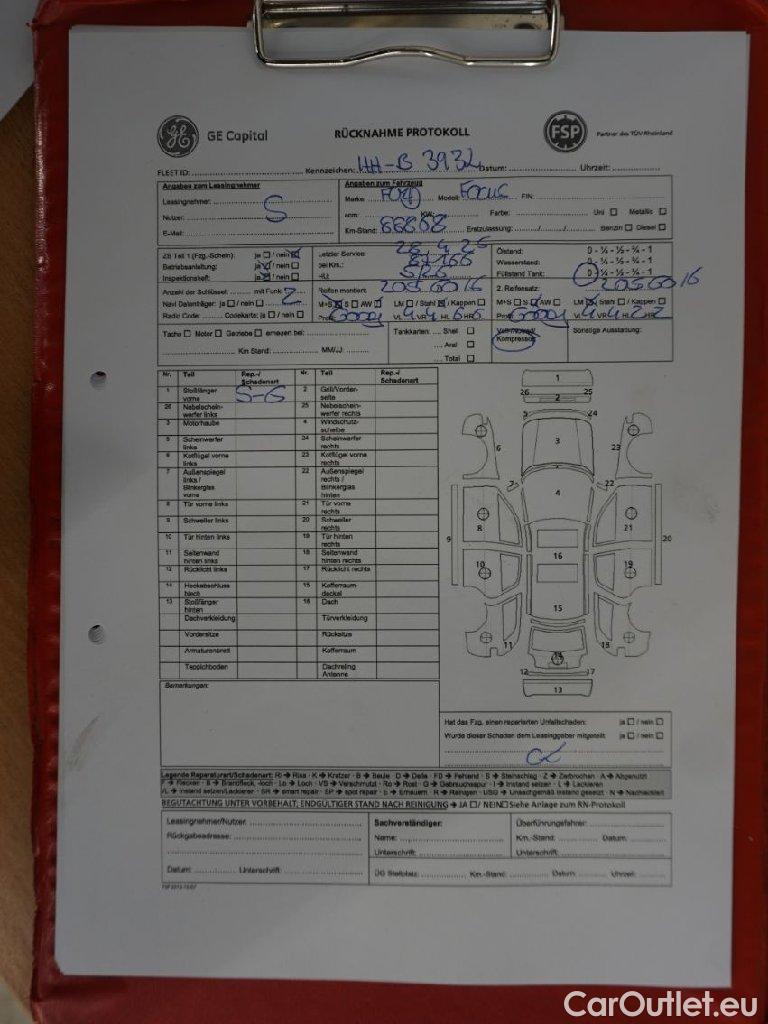 GE Capital
RÜCKNAHME PROTOKOLL
FSP
Partner des TÜV Rheinland
FLEET ID: Kennzeichen: HH-B 3932 Datum: Uhrzeit:
Angaben zum Leasingnehmer
Leasingnehmer:
Nutzer:
E-Mail:
S
Angaben zum Fahrzeug
Marke: Ford Modell: Focus FIN:
KW: Farbe: Uni ☐ Metallic ☐
Km-Stand: 88868 Erstzulassung: Benzin ☐ Diesel ☐
ZB Teil 1 (Fzg.-Schein): ja ☐ / nein ☒
Betriebsanleitung: ja ☒ / nein ☐
Inspektionsheft: ja ☒ / nein ☐
Letzter Service:
bei Km.:
HU:
Ölstand: 0 - ¼ - ½ - ¾ - 1
Wasserstand: 0 - ¼ - ½ - ¾ - 1
Füllstand Tank: 0 - ¼ - ½ - ¾ - 1
Anzahl der Schlüssel: mit Funk: 2
Navi Datenträger: ja ☐ / nein ☐
Radio Code: Codekarte: ja ☐ / nein ☐
Reifen montiert: 205 60 16
M+S ☒ S ☐ AW ☐ LM ☐ / Stahl ☒ / Kappen ☐
2. Reifensatz: 205 60 16
M+S ☐ S ☒ AW ☐ LM ☒ / Stahl ☐ / Kappen ☐
Tacho ☐ Motor ☐ Getriebe ☐ erneuert bei:
Km Stand: MM/J:
Tankkarten: Shell ☐
Aral ☐
Total ☐
Kompressor
Sonstige Ausstattung:
Nr. Teil Rep.-/ Schadenart Nr. Teil Rep.-/ Schadenart
1 Stoßfänger vorne S-G 2 Grill/Vorder-seite
26 Nebelschein-werfer links 25 Nebelschein-werfer rechts
3 Motorhaube 4 Windschutz-scheibe
5 Scheinwerfer links 24 Scheinwerfer rechts
6 Kotflügel vorne links 23 Kotflügel vorne rechts
7 Außenspiegel links / Blinkerglas vorne 22 Außenspiegel rechts / Blinkerglas hinten
8 Tür vorne links 21 Tür vorne rechts
9 Schweller links 20 Schweller rechts
10 Tür hinten links 19 Tür hinten rechts
11 Seitenwand hinten links 18 Seitenwand hinten rechts
12 Rücklicht links 17 Rücklicht rechts
14 Heckabschluss blech 15 Kofferraum-deckel
13 Stoßfänger hinten 16 Dach
Dachverkleidung Türverkleidung
Vordersitze Rücksitze
Armaturenbrett Kofferraum
Teppichboden Dachreling Antenne
1
26 25
2
5 24
6 3 23
7 22
4
8 21
9 20
16
10 19
15
11 18
14
12 17
13
Bemerkungen:
Hat das Fzg. einen reparierten Unfallschaden: ja ☐ / nein ☐
Wurde dieser Schaden dem Leasinggeber mitgeteilt: ja ☐ / nein ☐
Legende Reparaturart/Schadenart: Ri → Riss · K → Kratzer · B → Beule · D → Delle · FD → Fehlend · S → Steinschlag · Z → Zerbrochen · A → Abgenutzt
F → Flecken · B → Brandfleck, -loch · Lo → Loch · VS → Verschmutzt · Ro → Rost · G → Gebrauchsspur · I → Instand setzen · L → Lackieren
I/L → Instand setzen/Lackieren · SR → smart repair · SP → spot repair · E → Erneuern · R → Reinigen · USG → Unsachgemäß instand gesetzt · N → Nachlackiert
BEGUTACHTUNG UNTER VORBEHALT, ENDGÜLTIGER STAND NACH REINIGUNG → JA ☐ / NEIN ☐ Siehe Anlage zum RN-Protokoll
Leasingnehmer/Nutzer:
Rückgabeadresse:
Datum: Unterschrift:
Sachverständiger:
Name:
Unterschrift:
Überführungsfahrer:
Km.-Stand: Datum:
Unterschrift:
DG Stellplatz: Km.-Stand: Datum: Uhrzeit:
CarOutlet.eu